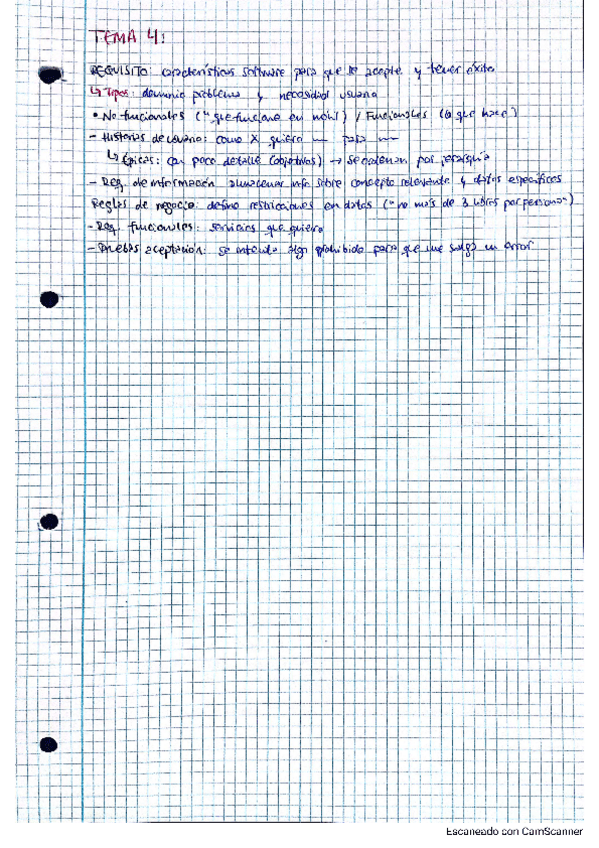 TEMA 4:
REQUISITO: características software para que se acepte y tener éxito
↳ Tipos: dominio problema y necesidad usuario
• No funcionales ("que funcione en móvil") / Funcionales (lo que hace)
- Historias de usuario: como X quiero — para —
↳ Épicas: con poco detalle (objetivos) → se ordenan por jerarquía
- Req. de información: almacenar info sobre concepto relevante y datos específicos
Reglas de negocio: define restricciones en datos ("no más de 3 libros por persona")
- Req. funcionales: servicios que quiero
- Pruebas aceptación: se intenta algo prohibido para que me salga un error
Escaneado con CamScanner